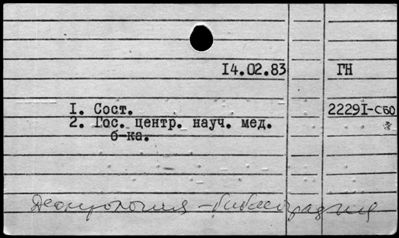 14.02.83 ГН
I. Сост. 2229I-сбо
2. Гос. центр. науч. мед.
б-ка.
Деонтология - библиография